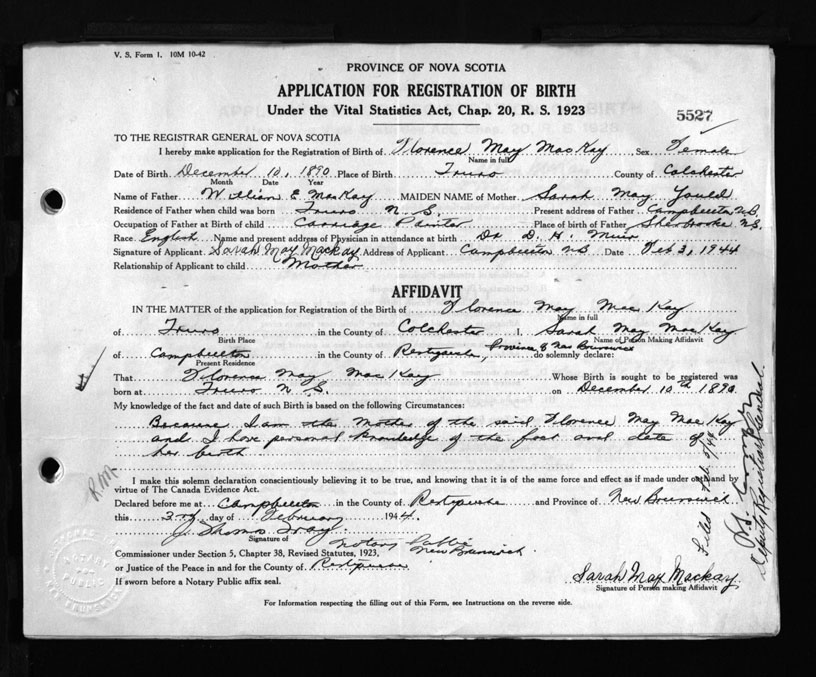 V. S. Form 1. 10M 10-42
PROVINCE OF NOVA SCOTIA
APPLICATION FOR REGISTRATION OF BIRTH
Under the Vital Statistics Act, Chap. 20, R. S. 1923
5527
TO THE REGISTRAR GENERAL OF NOVA SCOTIA
I hereby make application for the Registration of Birth of Florence May MacKay Sex Female
Name in full
Date of Birth December 10, 1890 Place of Birth Truro County of Colchester
Month Date Year
Name of Father William E. MacKay MAIDEN NAME of Mother Sarah May Yould
Residence of Father when child was born Truro N. S. Present address of Father Campbellton N.B.
Occupation of Father at Birth of child Carriage Painter Place of birth of Father Sherbrooke N.S.
Race English Name and present address of Physician in attendance at birth Dr D. H. Muir
Signature of Applicant Sarah May Mackay Address of Applicant Campbellton N.B. Date Feb 3, 1944
Relationship of Applicant to child Mother
AFFIDAVIT
IN THE MATTER of the application for Registration of the Birth of Florence May MacKay
Name in full
of Truro in the County of Colchester I, Sarah May MacKay
Birth Place Name of Person Making Affidavit
of Campbellton in the County of Restigouche, Province of New Brunswick do solemnly declare:
Present Residence
That Florence May MacKay Whose Birth is sought to be registered was
born at Truro N. S. on December 10th 1890
My knowledge of the fact and date of such Birth is based on the following Circumstances:
Because I am the mother of the said Florence May MacKay
and I have personal knowledge of the fact and date of
her birth
I make this solemn declaration conscientiously believing it to be true, and knowing that it is of the same force and effect as if made under oath and by
virtue of The Canada Evidence Act.
Declared before me at Campbellton in the County of Restigouche and Province of New Brunswick
this 3rd day of February 1944.
J. Thomas
Signature of
Notary Public
New Brunswick
Commissioner under Section 5, Chapter 38, Revised Statutes, 1923,
or Justice of the Peace in and for the County of Restigouche
If sworn before a Notary Public affix seal.
Sarah May Mackay
Signature of Person making Affidavit
For Information respecting the filling out of this Form, see Instructions on the reverse side.
Filed Feb.
Deputy Registrar General.
NOTARY
PUBLIC
NEW BRUNSWICK